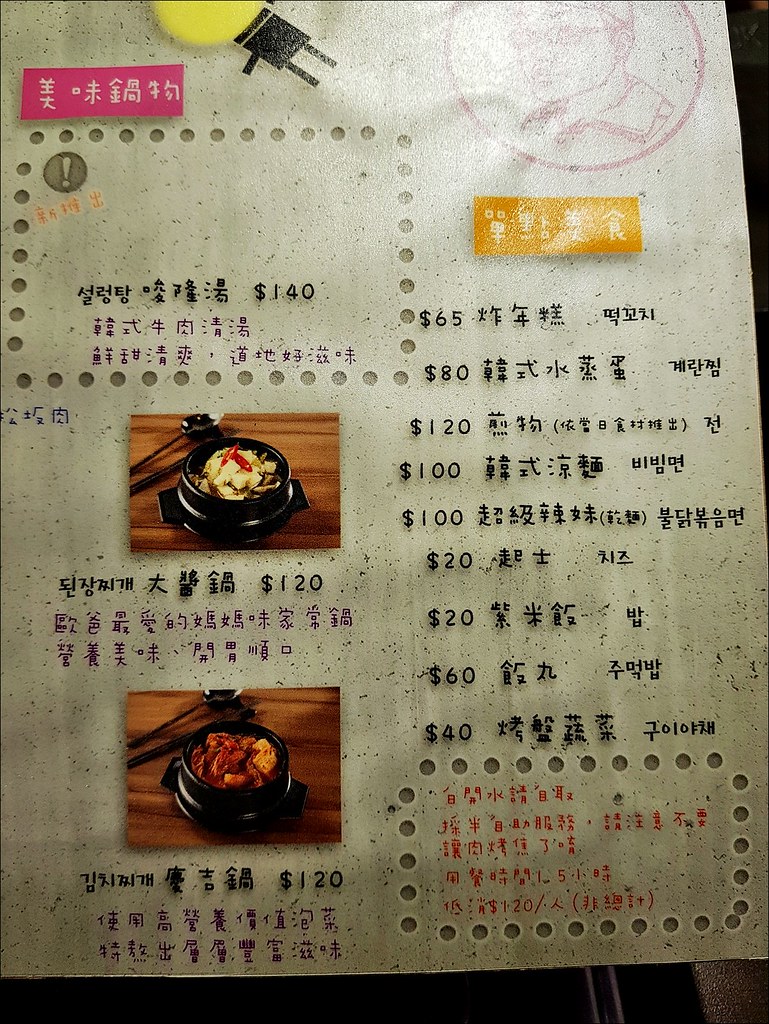 美味鍋物
新推出
설렁탕 唆隆湯 $140
韓式牛肉清湯
鮮甜清爽，道地好滋味
松坂肉
된장찌개 大醬鍋 $120
歐爸最愛的媽媽味家常鍋
營養美味、開胃順口
김치찌개 慶吉鍋 $120
使用高營養價值泡菜
特熬出層層豐富滋味
單點美食
$65 炸年糕 떡꼬치
$80 韓式水蒸蛋 계란찜
$120 煎物(依當日食材推出) 전
$100 韓式涼麵 비빔면
$100 超級辣妹(乾麵) 불닭볶음면
$20 起士 치즈
$20 紫米飯 밥
$60 飯丸 주먹밥
$40 烤盤蔬菜 구이야채
白開水請自取
採半自助服務，請注意不要
讓肉烤焦了唷
用餐時間1.5小時
低消$120/人(非總計)